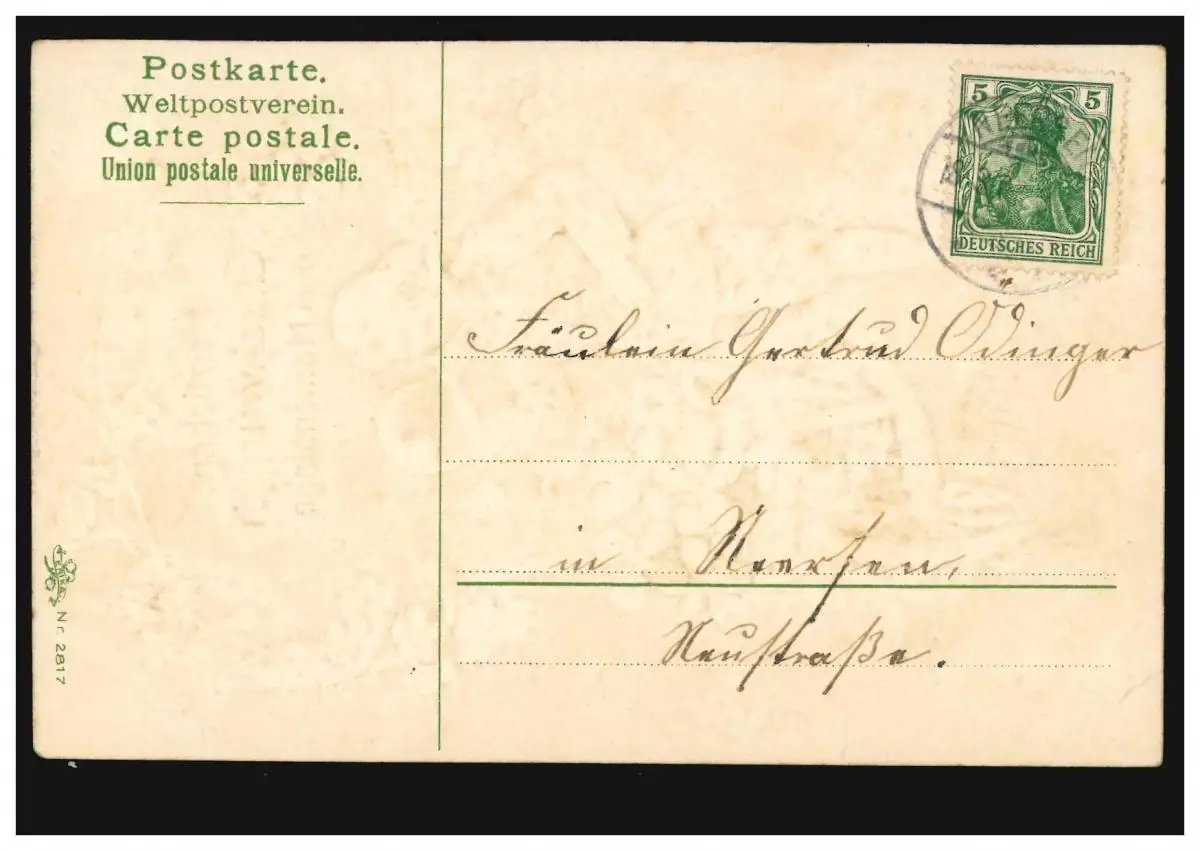 Postkarte.
Weltpostverein.
Carte postale.
Union postale universelle.
5 5
DEUTSCHES REICH
Fräulein Gertrud Odinger
in Neersen,
Neustraße.
ERIKA
Nr. 2817